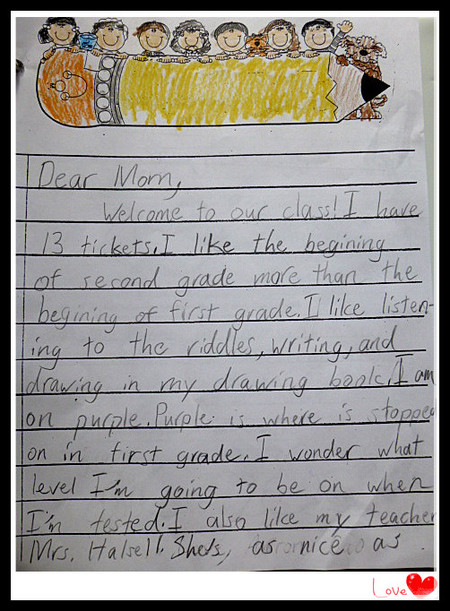 Dear Mom,
Welcome to our class! I have
13 tickets. I like the begining
of second grade more than the
begining of first grade. I like listen-
ing to the riddles, writing, and
drawing in my drawing book. I am
on purple. Purple is where is stopped
on in first grade. I wonder what
level I'm going to be on when
I'm tested. I also like my teacher
Mrs. Halsell. She's, as nice as
Love